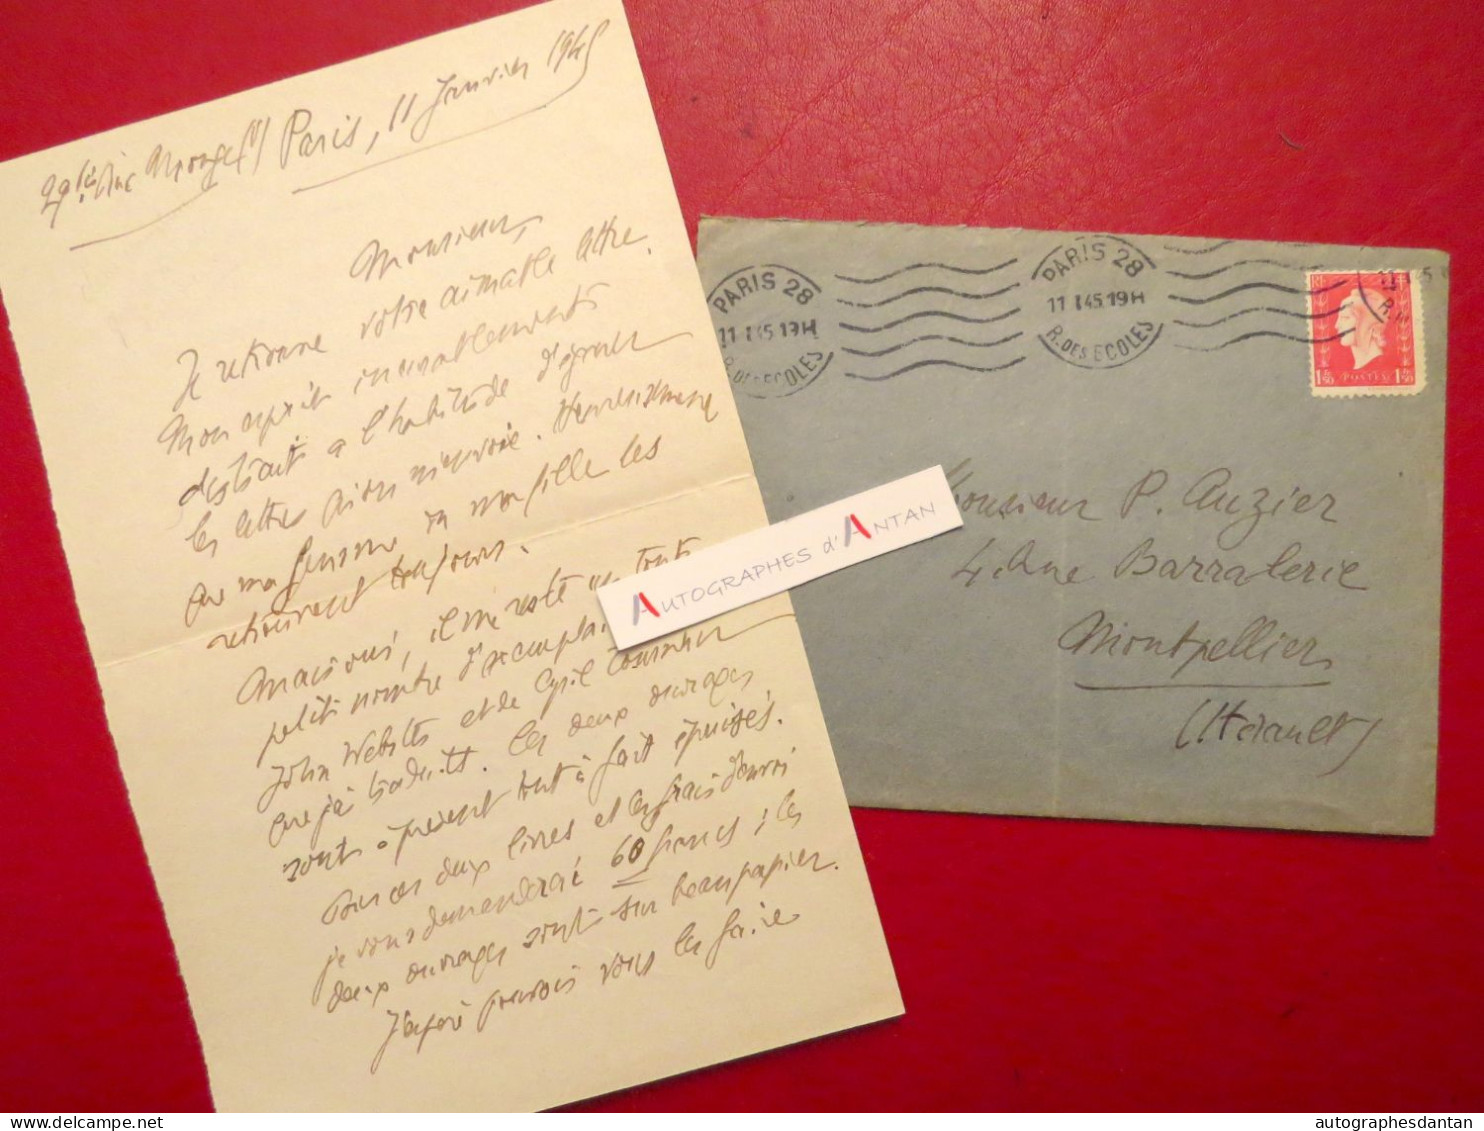 29 bis Rue Monge (V) Paris, 11 Janvier 1945
Monsieur,
Je retrouve votre aimable lettre.
Mon esprit incurablement
distrait a l'habitude d'égarer
les lettres qu'on m'envoie. Heureusement
que ma femme ou ma fille les
retrouvent toujours.
Mais oui, il me reste un tout
petit nombre d'exemplaires
John Webster et de Cyril Tourneur
que j'ai traduits. Ces deux ouvrages
sont à présent tout à fait épuisés.
Pour ces deux livres et les frais d'envoi
je vous demanderai 60 francs ; les
deux ouvrages sont sur beau papier.
J'espère pouvoir vous les faire
AUTOGRAPHES d'ANTAN
PARIS 28
11 I 45 19H
R. DES ECOLES
PARIS 28
11 I 45 19H
R. DES ECOLES
RF
1F50 POSTES 1F50
Monsieur P. Auzier
4. Rue Barralerie
Montpellier
(Hérault)
autographesdantan